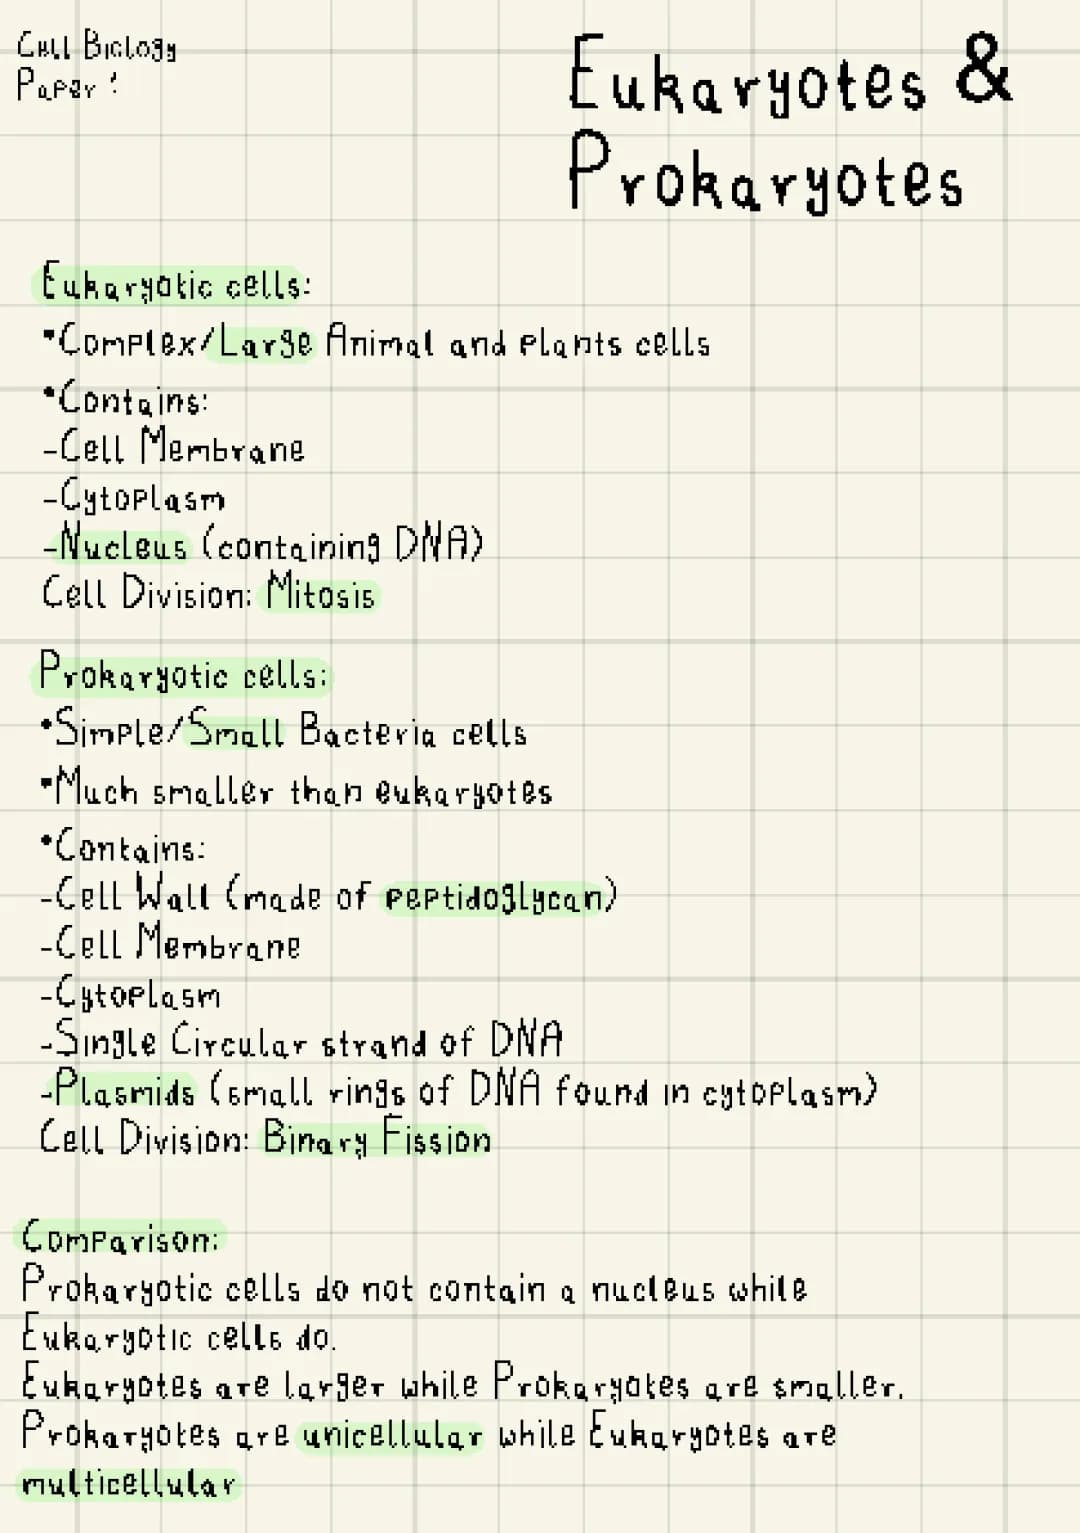 Cell Biology
Paper
Eukaryotes &
Prokaryotes
Eukaryotic cells:
•Complex/Large Animal and plants cells
•Contains:
-Cell Membrane
-Cytoplasm
-Nucleus (containing DNA)
Cell Division: Mitosis
Prokaryotic cells:
•Simple/Small Bacteria cells
•Much smaller than eukaryotes
•Contains:
-Cell Wall (made of peptidoglycan)
-Cell Membrane
-Cytoplasm
-Single Circular strand of DNA
-Plasmids (small rings of DNA found in cytoplasm)
Cell Division: Binary Fission
Comparison:
Prokaryotic cells do not contain a nucleus while
Eukaryotic cells do.
Eukaryotes are larger while Prokaryotes are smaller.
Prokaryotes are unicellular while Eukaryotes are
multicellular